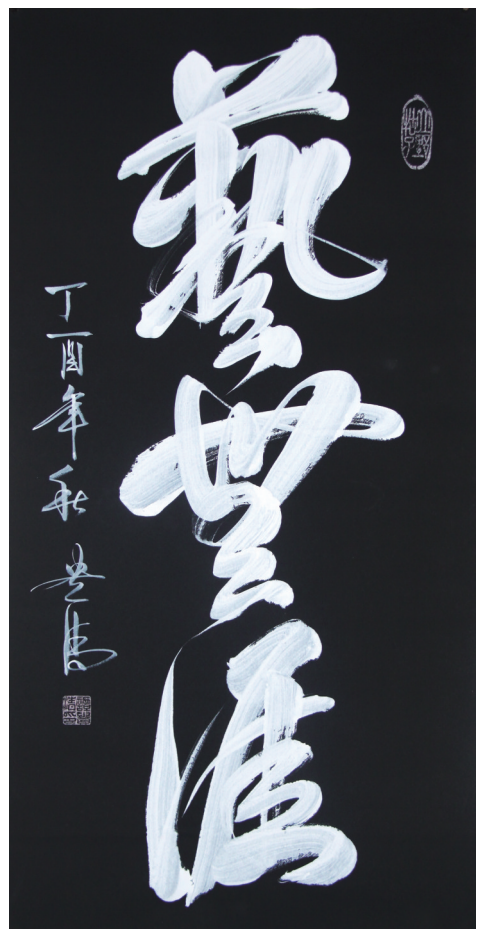 藝無涯
丁酉年秋